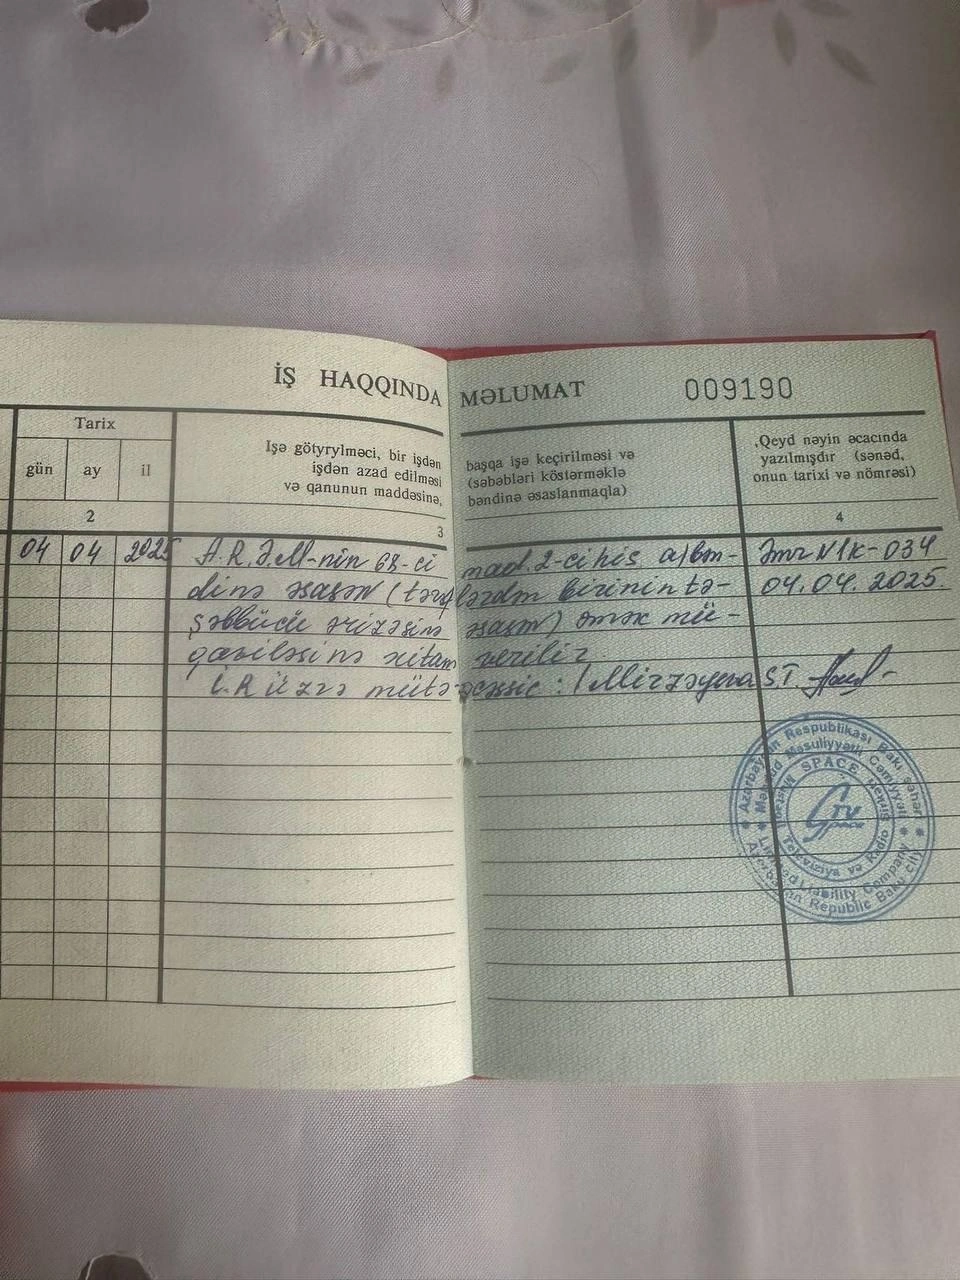 İŞ HAQQINDA MƏLUMAT 009190
Tarix
gün ay il
Işə götyrylməci, bir işdən
işdən azad edilməsi
və qanunun maddəsinə,
başqa işə keçirilməsi və
(səbəbləri köstərməklə
bəndinə əsaslanmaqla)
,Qeyd nəyin əcacında
yazılmışdır (sənəd,
onun tarixi və nömrəsi)
2 3 4
04 04 2025 A.R.Ə.M-nin 68-ci mad. 2-ci his a) bən- Əmr N İK-034
dinə əsasən (tərəflərdən birinin tə- 04.04.2025.
şəbbüsü ərizəsinə əsasən) əmək mü-
qaviləsinə xitam verilir.
İ.R üzrə mütəxəssis: Mirzəyeva S.T.
Azərbaycan Respublikası Bakı şəhəri
Məhdud Məsuliyyətli Cəmiyyəti
SPACE
Müstəqil Televiziya və Radio Şirkəti
TV
SPACE
Limited Liability Company
Azerbaijan Republic Baku city